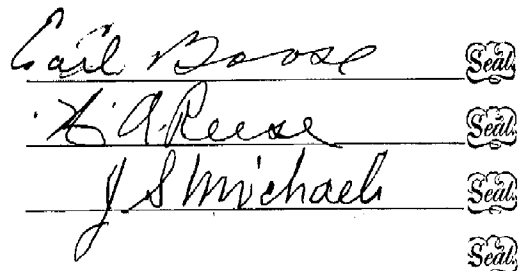 Earl Boose Seal
H. A. Reese Seal
J S Michaels Seal
Seal